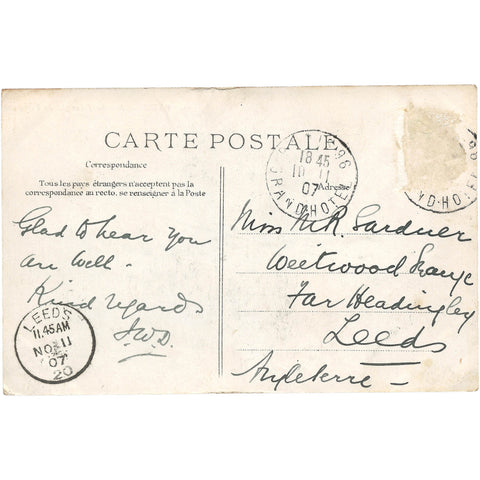 CARTE POSTALE
Correspondance
Tous les pays étrangers n'acceptent pas la
correspondance au recto, se renseigner à la Poste
Adresse
18 45
10 11
07
GRAND-HOTEL
96
96
D-HOTEL
Glad to hear you
are well.
Kind regards
Miss Gardner
Weetwood Grange
Far Headingley
Leeds
Angleterre
LEEDS
11.45AM
NO 11
07
20